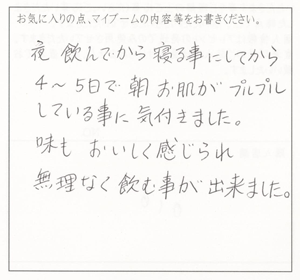 お気に入りの点、マイブームの内容等をお書きください。
夜 飲んでから寝る事にしてから
4～5日で朝お肌がプルプル
している事に気付きました。
味もおいしく感じられ
無理なく飲む事が出来ました。